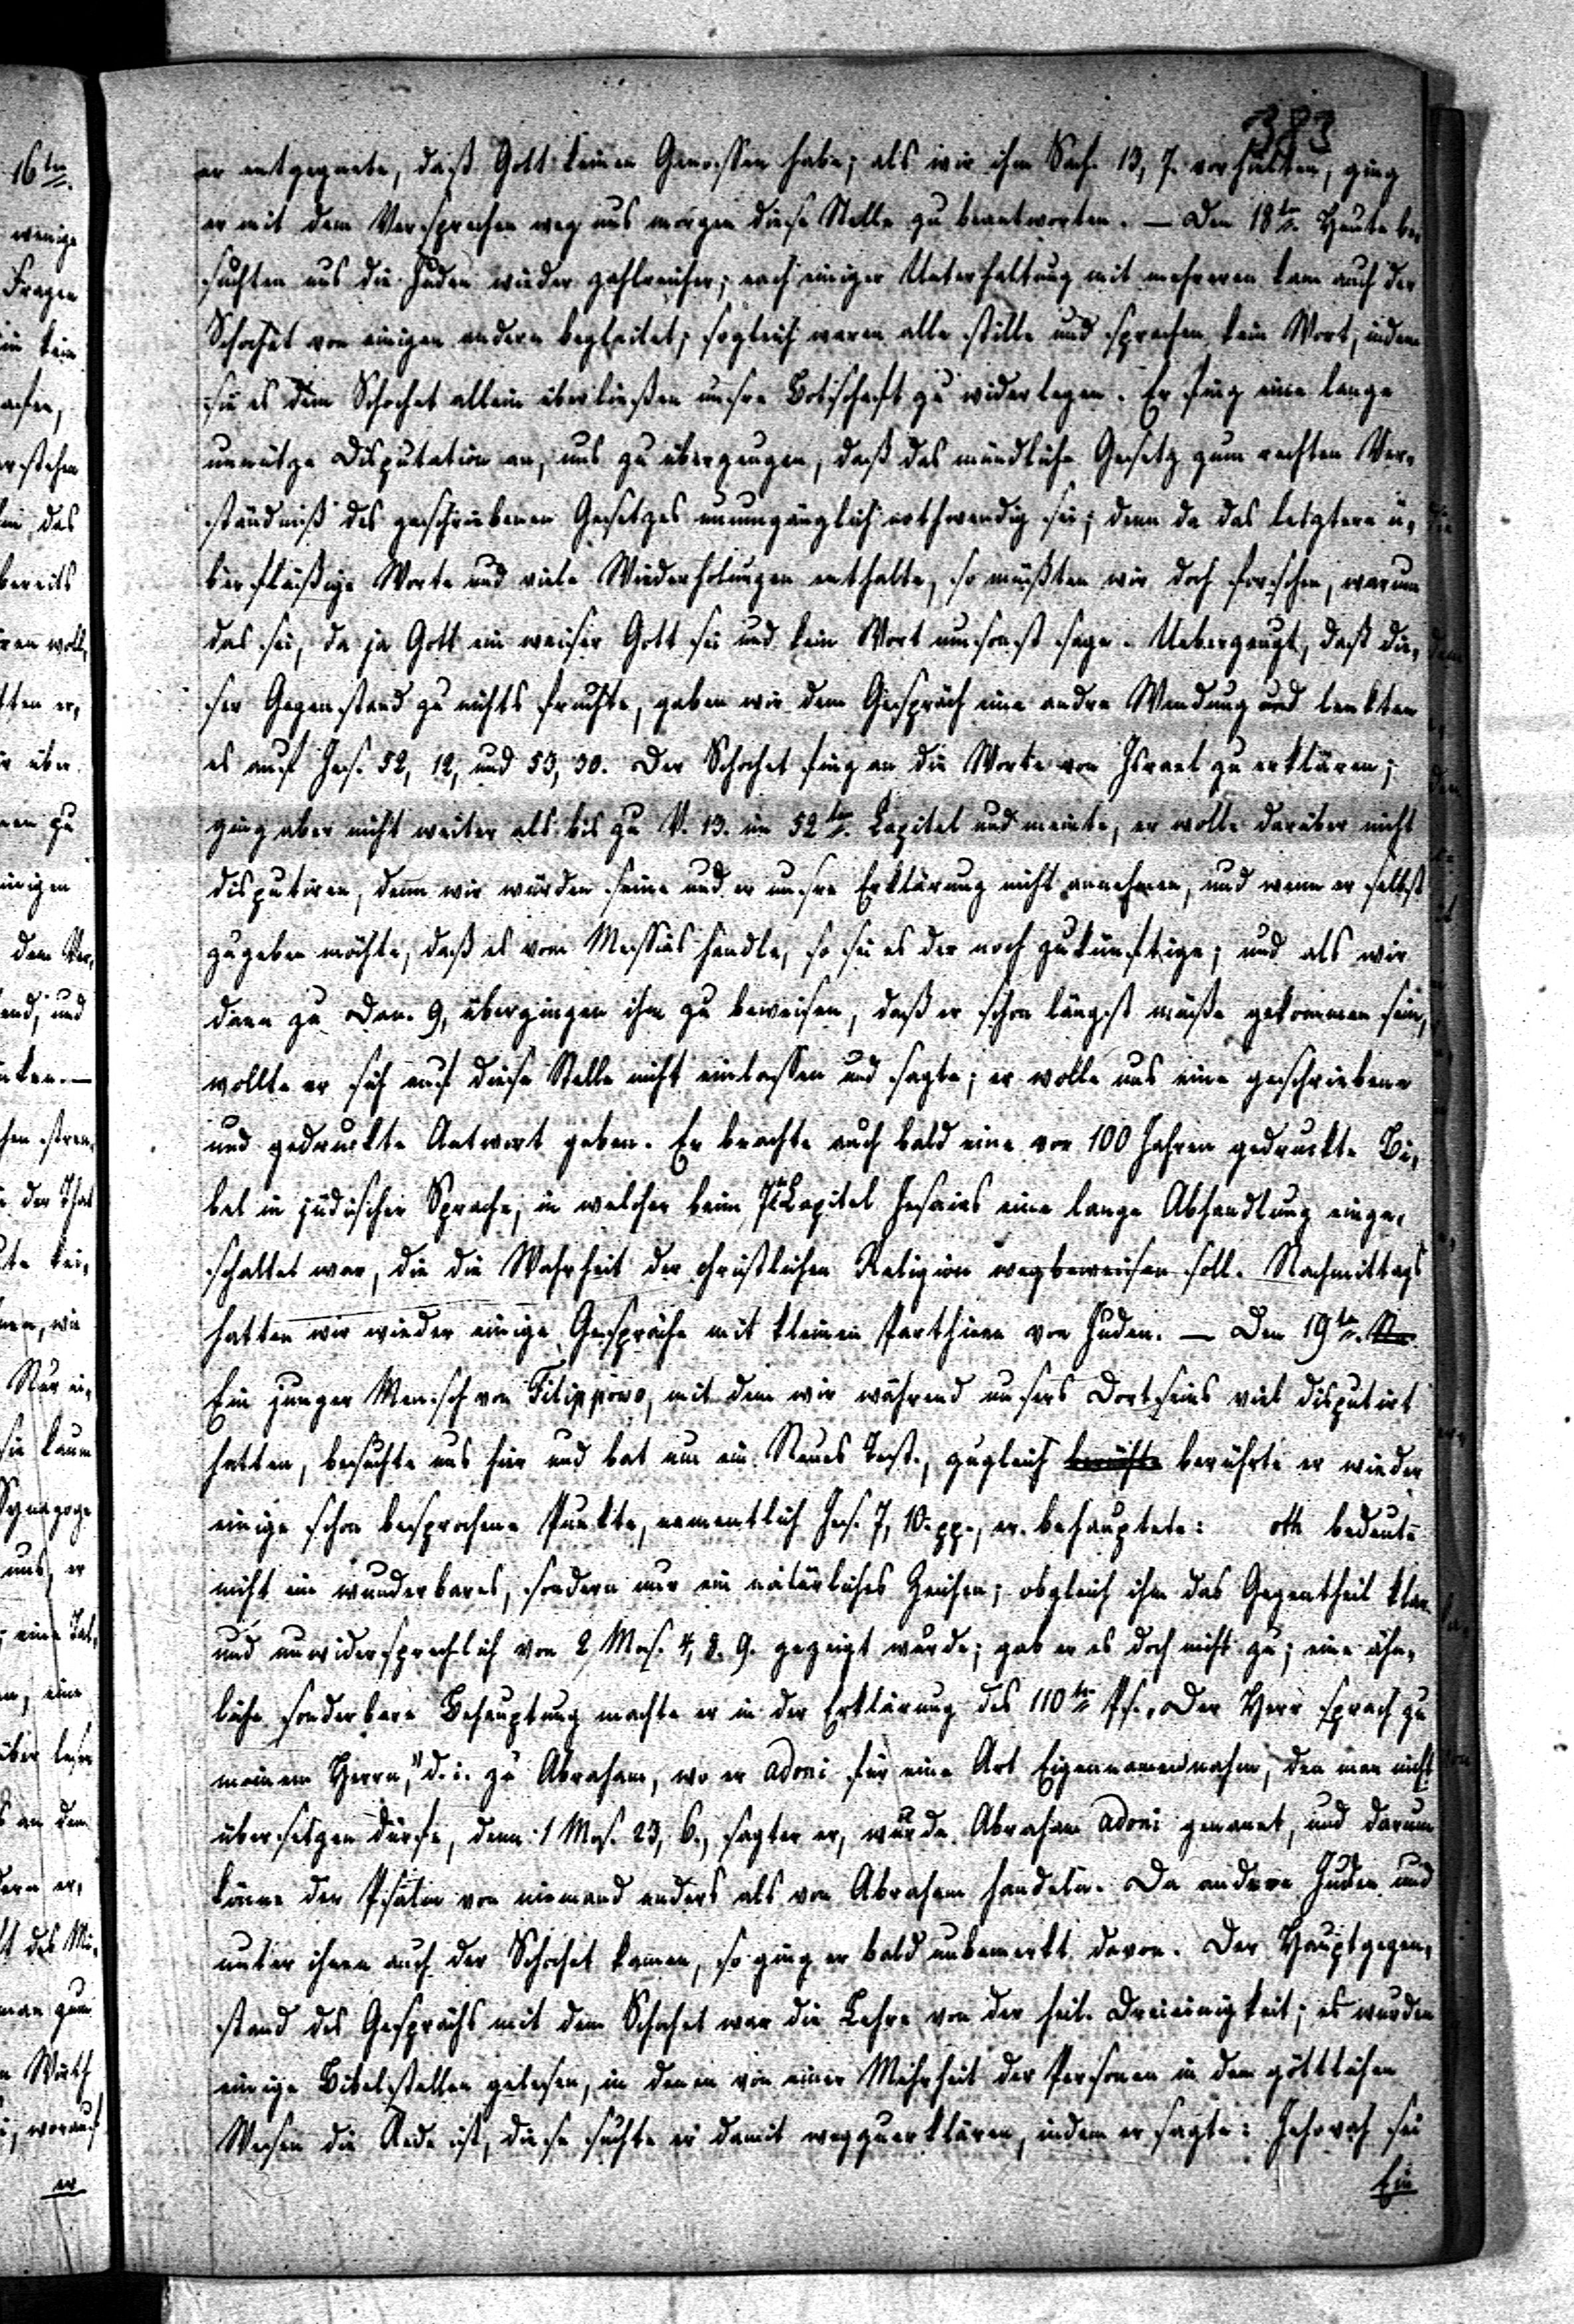 383
er entgegnete, daß Gott keinen Genossen habe; als wir ihm Sach. 13, 7. vorhielten, ging
er mit dem Versprechen weg uns morgen diese Stelle zu beantworten. — Den 18ten. Heute be-
suchten uns die Juden wieder zahlreicher; nach einiger Unterhaltung mit mehreren kam auch der
Schochet von einigen andern begleitet; sogleich waren alle stille und sprachen kein Wort, indem
sie es dem Schochet allein überließen unsre Botschaft zu widerlegen. Er fing eine lange
unnütze Disputation an, uns zu überzeugen, daß das mündliche Gesetz zum rechten Ver-
ständniß des geschriebenen Gesetzes unumgänglich nothwendig sei; denn da das letztere ü-
berflüßige Worte und viele Wiederholungen enthalte, so müßten wir doch forschen, warum
das sei, da ja Gott ein weiser Gott sei und kein Wort umsonst sage. Ueberzeugt, daß die-
ser Gegenstand zu nichts fruchte, gaben wir dem Gespräch eine andre Wendung und lenkten
es auf Jes. 52, 12, und 53, 30. Der Schochet fing an die Worte von Israel zu erklären;
ging aber nicht weiter als bis zu V. 13. im 52ten. Capitel und meinte, er wolle darüber nicht
disputiren, denn wir würden seine und er unsre Erklärung nicht annehmen, und wenn er selbst
zugeben möchte, daß es vom Messias handle, so sei es der noch zukünftige; und als wir
dann zu Dan. 9, übergingen ihm zu beweisen, daß er schon längst müße gekommen sein,
wollte er sich auf diese Stelle nicht einlassen und sagte; er wolle uns eine geschriebene
und gedruckte Antwort geben. Er brachte auch bald eine vor 100 Jahren gedruckte Bi-
bel in jüdischer Sprache, in welcher beim 7ten Capitel Jesaias eine lange Abhandlung einge-
schaltet war, die die Wahrheit der christlichen Religion wegbeweisen soll. Nachmittags
hatten wir wieder einige Gespräche mit kleinen Parthieen von Juden. — Den 19ten.
Ein junger Mensch von Filippowo, mit dem wir während unsers Dortseins viel disputirt
hatten, besuchte uns hier und bat um ein Neues Test., zugleich berührte er wieder
einige schon besprochene Punkte, namentlich Jes. 7, 10. pp., er behauptete: oth bedeute
nicht ein wunderbares, sondern nur ein natürliches Zeichen; obgleich ihm das Gegentheil klar
und unwidersprechlich von 2 Mos. 4, 8. 9. gezeigt wurde; gab er es doch nicht zu; eine ähn-
liche sonderbare Behauptung machte er in der Erklärung des 110ten Ps. „Der Herr sprach zu
meinem Herrn," d. i. zu Abraham, wo er adoni für eine Art Eigennamen nahm, den man nicht
übersetzen dürfe, denn 1 Mos. 23, 6., sagte er, wurde Abraham adoni genannt, und darum
könne der Psalm von niemand anders als von Abraham handeln. Da andere Juden und
unter ihnen auch der Schochet kamen, so ging er bald unbemerkt davon. Der Hauptgegen-
stand des Gesprächs mit dem Schochet war die Lehre von der heil. Dreieinigkeit; es wurden
einige Bibelstellen gelesen, in denen von einer Mehrheit der Personen in dem göttlichen
Wesen die Rede ist, diese suchte er damit wegzuerklären, indem er sagte: Jehovah sei
Ein